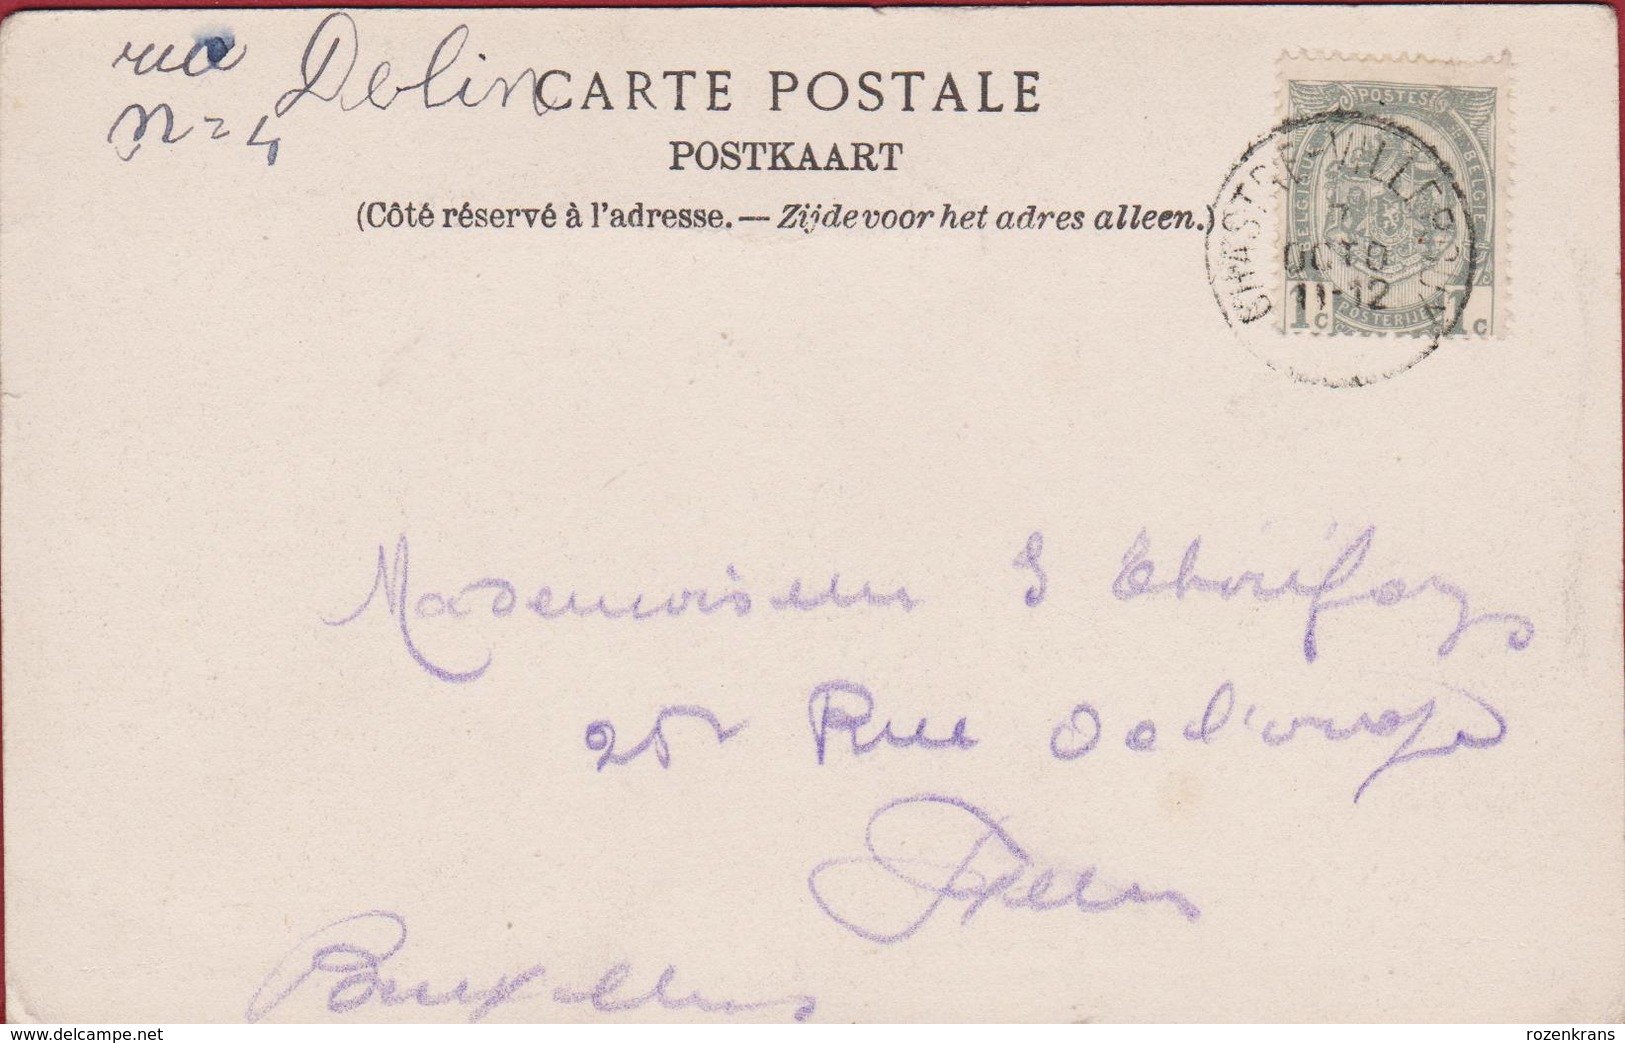 rue Delin
n= 4
CARTE POSTALE
POSTKAART
(Côté réservé à l'adresse. — Zijde voor het adres alleen.)
POSTES
BELGIQUE
BELGIE
POSTERIJEN
1c 1c
CHASTRE-VILLEROUX
7
OCTO
11-12
Mademoiselle
25 Rue de
Ixelles
Bruxelles
www.delcampe.net
rozenkrans